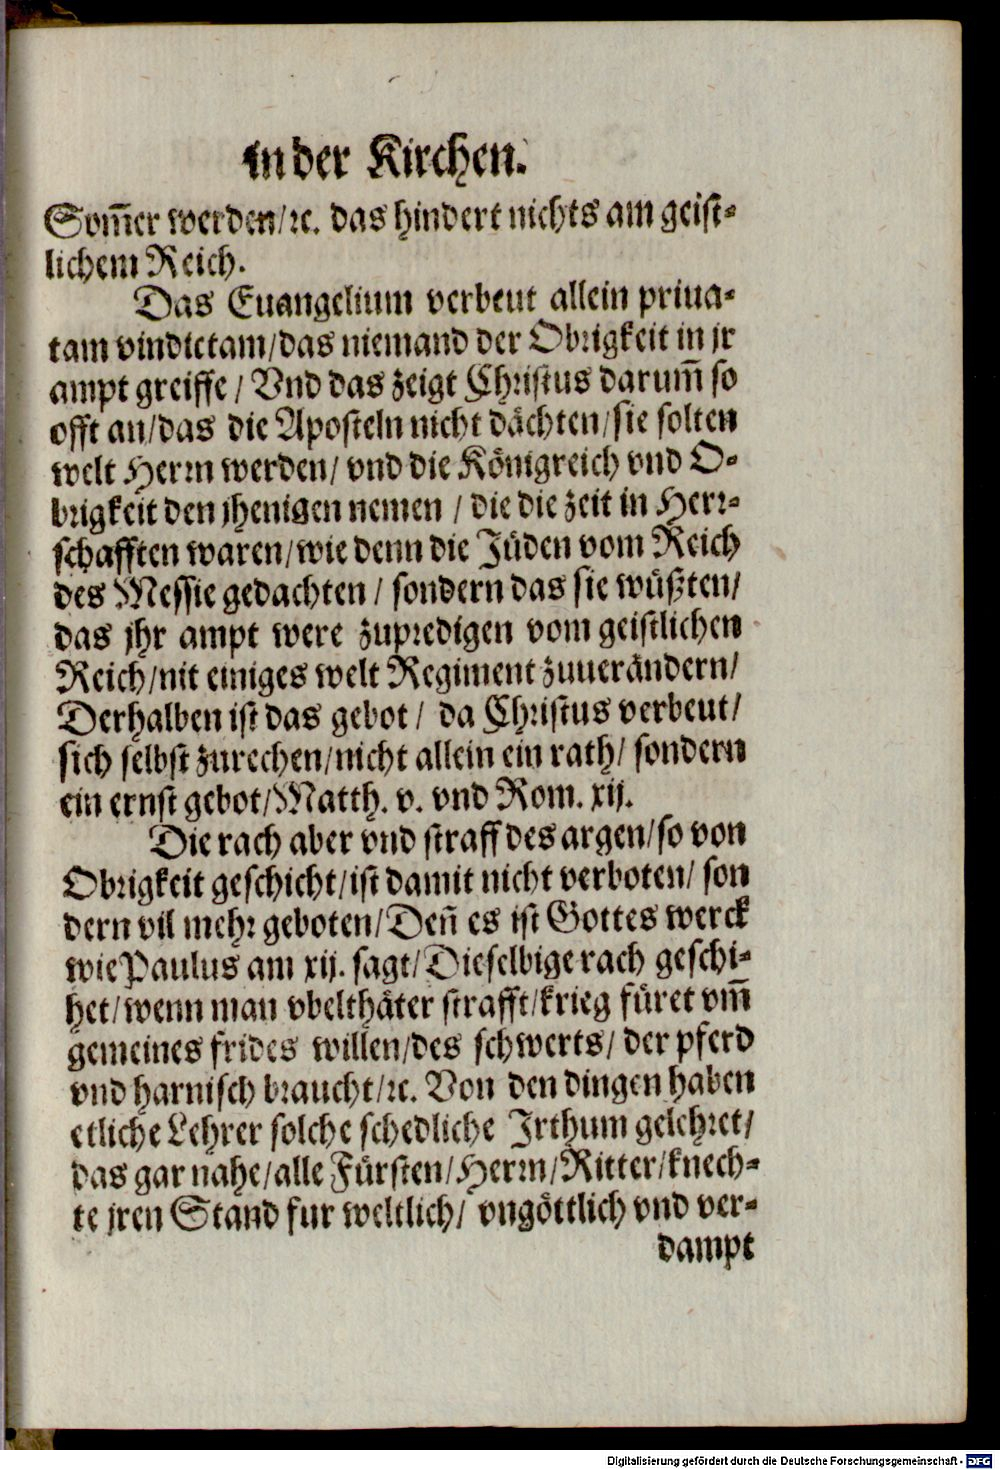 in der Kirchen.
Som̃er werden/ ꝛc. das hindert nichts am geist-
lichem Reich.
Das Euangelium verbeut allein priua-
tam vindictam/das niemand der Obrigkeit in jr
ampt greiffe / Vnd das zeigt Christus darum̃ so
offt an/das die Aposteln nicht dächten/sie solten
welt Herrn werden/ vnd die Königreich vnd O-
brigkeit den jhenigen nemen / die die zeit in Herr-
schafften waren/wie denn die Jüden vom Reich
des Messie gedachten / sondern das sie wüßten/
das jhr ampt were zupredigen vom geistlichen
Reich/nit einiges welt Regiment zuuerändern/
Derhalben ist das gebot / da Christus verbeut/
sich selbst zurechen/nicht allein ein rath/ sondern
ein ernst gebot/Matth. v. vnd Rom. xij.
Die rach aber vnd straff des argen/so von
Obrigkeit geschicht/ist damit nicht verboten/ son
dern vil mehr geboten/Deñ es ist Gottes werck
wie Paulus am xij. sagt/Dieselbige rach geschi-
het/wenn man vbelthäter strafft/krieg füret vm̃
gemeines frides willen/des schwerts/ der pferd
vnd harnisch braucht/ꝛc. Von den dingen haben
etliche Lehrer solche schedliche Irthum gelehret/
das gar nahe/alle Fürsten/Herrn/Ritter/knech-
te jren Stand fur weltlich/ vngöttlich vnd ver-
dampt
Digitalisierung gefördert durch die Deutsche Forschungsgemeinschaft - DFG